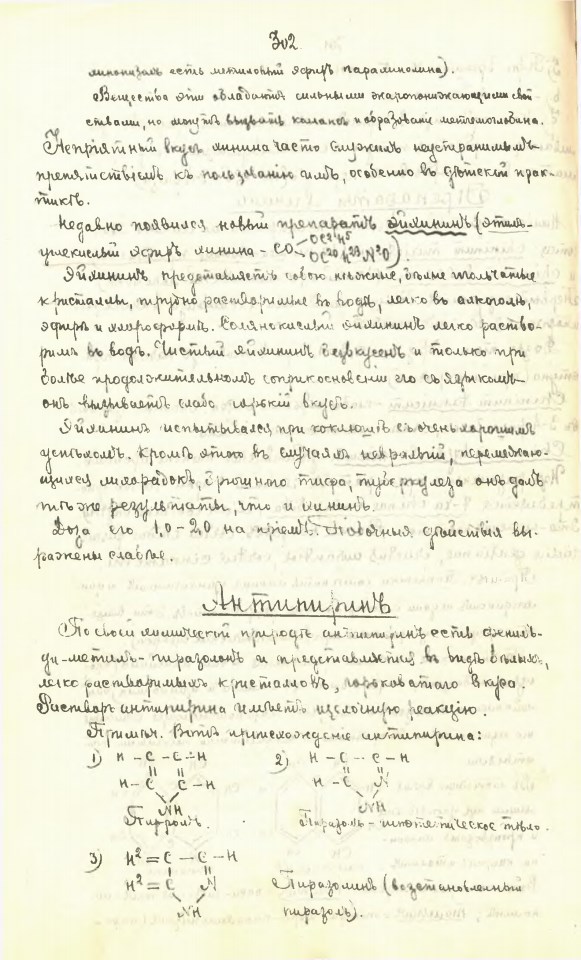 302
хинонизолъ есть метиловый эфиръ парахинолина).
Вещества эти обладаютъ сильными жаропонижающими свой
ствами, но могутъ вызвать коллапсъ и образование метемоглобина.
Непріятный вкусъ хинина часто служитъ неустранимымъ
препятствіемъ къ пользованію имъ, особенно въ дѣтской прак-
тикѣ.
Недавно появился новый препаратъ эйхининъ (этило-
углекислый эфиръ хинина - CO OC²H⁵ OC²⁰H²³N²O).
Эйхининъ представляетъ собою нѣжные, бѣлые игольчатые
кристаллы, трудно растворимые въ водѣ, легко въ алкоголѣ,
эфирѣ и хлороформѣ. Солянокислый эйхининъ легко раство-
римъ въ водѣ. Чистый эйхининъ безвкусенъ и только при
болѣе продолжительномъ соприкосновеніи его съ языкомъ
онъ вызываетъ слабо горькій вкусъ.
Эйхининъ испытывался при коклюшѣ съ очень хорошимъ
успѣхомъ. Кромѣ этого въ случаяхъ невралгій, перемежаю-
щихся лихорадокъ, брюшного тифа, туберкулеза онъ далъ
тѣ же результаты, что и хининъ.
Доза его 1,0-2,0 на пріемъ. Побочныя дѣйствія вы-
ражены слабѣе.
Антипиринъ
По своей химической природѣ антипиринъ есть фенилъ-
ди-метилъ-пиразолонъ и представляется въ видѣ бѣлыхъ,
легко растворимыхъ кристалловъ, горьковатаго вкуса.
Растворъ антипирина имѣетъ щелочную реакцію.
Примѣч. Вотъ происхожденіе антипирина:
1) H - C - C - H 2) H - C - C - H
H - C C - H H - C N
NH NH
Пирролъ. Пиразолъ - гипотетическое тѣло.
3) H² = C - C - H
H² = C N Пиразолинъ (возстановленный
NH пиразолъ).